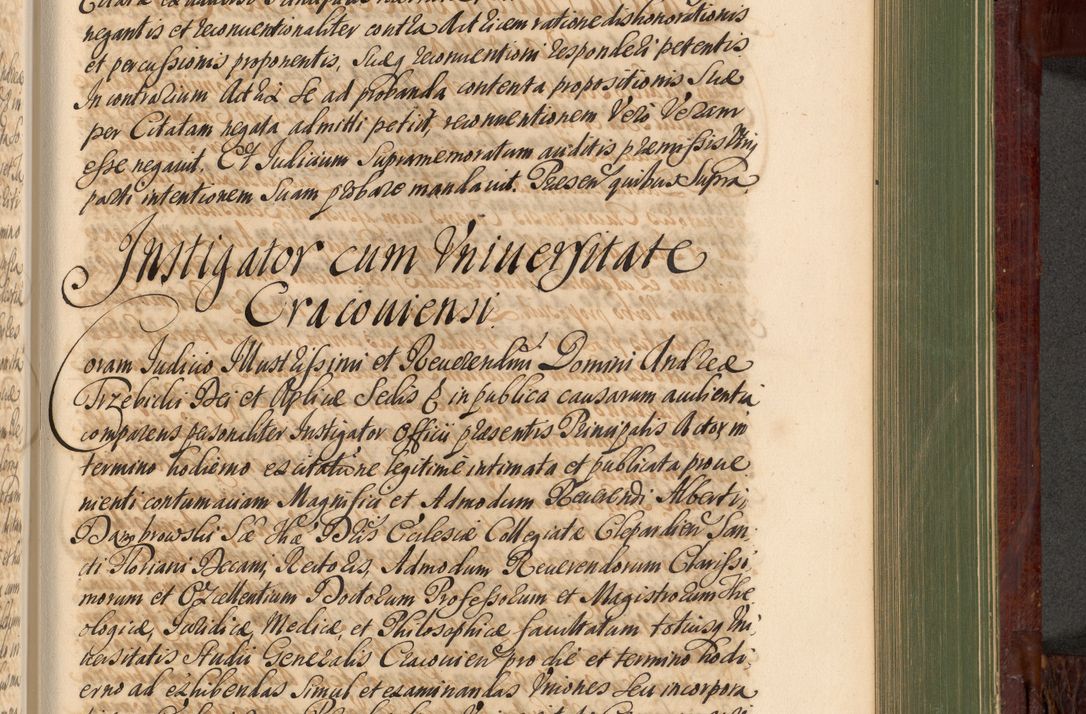 negantis et reconventionaliter contra Actricem ratione dishonorationis
et percussionis proponentis, suaeq reconventioni responderi petentis
In contrarium Actrix se ad probanda contenta propositionis suae
per Citatam negata admitti petiit, reconventionem vero veram
esse negavit. Et Iudicium supramemoratum auditis praemissis Uni
parti intentionem suam probare mandavit. Praesen quibus Supra
Instigator cum Universitate
Cracoviensi
Coram Iudicio Illustrissimi et Reverendmi Domini Andreae
Trzebicki Dei et Aplicae Sedis G in publica causarum audientia
comparens personaliter Instigator officii praesentis Principalis Actor in
termino hodierno ex citatione legitime intimata et publicata prove
nienti contumaciam Magnifici et Admodum Reverendi Alberti
Dąmbrowski Sae Thae Dris Ecclesiae Collegiatae Clepardien San
cti Floriani Decani, Rectoris, Admodum Reverendorum Clarissi
morum et Excellentium Doctorum Professorum et Magistrorum The
ologicae, Iuridicae, Medicae, et Philosophicae facultatum totiusq Uni
versitatis Studii Generalis Cracovien pro die et termino hodi
erno ad exhibendas simul et examinandas Uniones seu incorpora